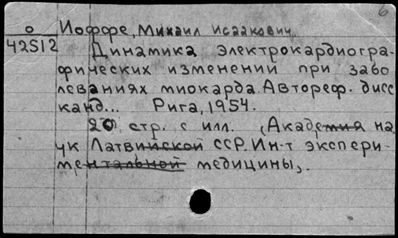 6
о Иоффе, Михаил Исаакович
42512 Динамика электрокардиогра-
фических изменений при забо
леваниях миокарда. Автореф. дисс
канд... Рига, 1954.
20 стр. с илл. (Академия на
ук Латвийской ССР. Ин-т экспери-
ментальной медицины).